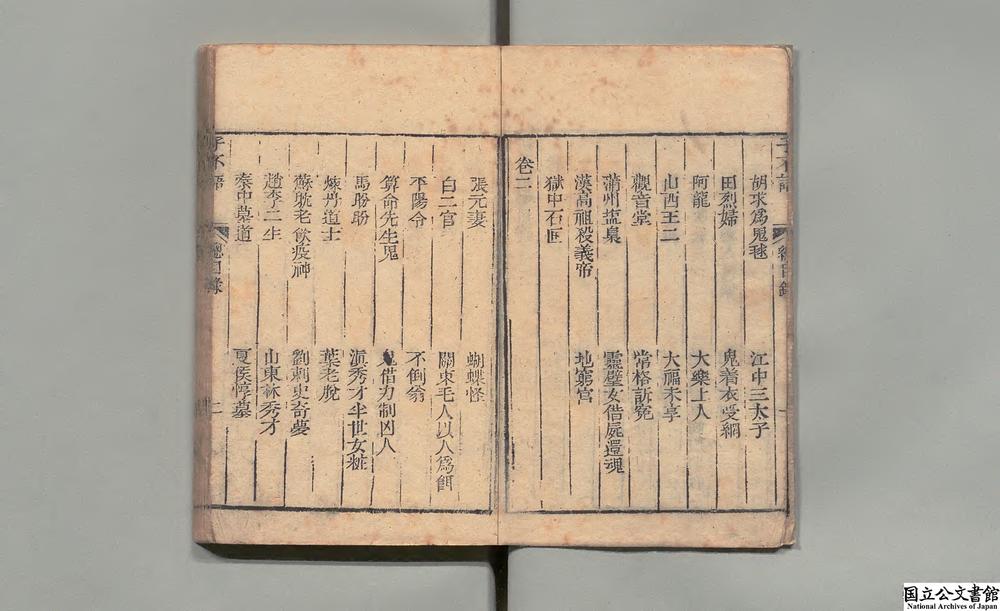 子不語 總目錄
胡求爲鬼毬 江中三太子
田烈婦 鬼着衣受網
阿龍 大樂上人
山西王二 大福未享
觀音堂 常格訴寃
蒲州盐梟 靈璧女借屍還魂
漢高祖殺義帝 地窮宮
獄中石匣
卷二
張元妻 蝴蝶怪
白二官 關東毛人以人爲餌
平陽令 不倒翁
算命先生鬼 鬼借力制凶人
馬盼盼 滇秀才半世女粧
煉丹道士 葉老脫
蘇躭老飲疫神 劉刺史奇夢
趙李二生 山東林秀才
秦中墓道 夏侯惇墓
子不語 總目錄 二
国立公文書館
National Archives of Japan